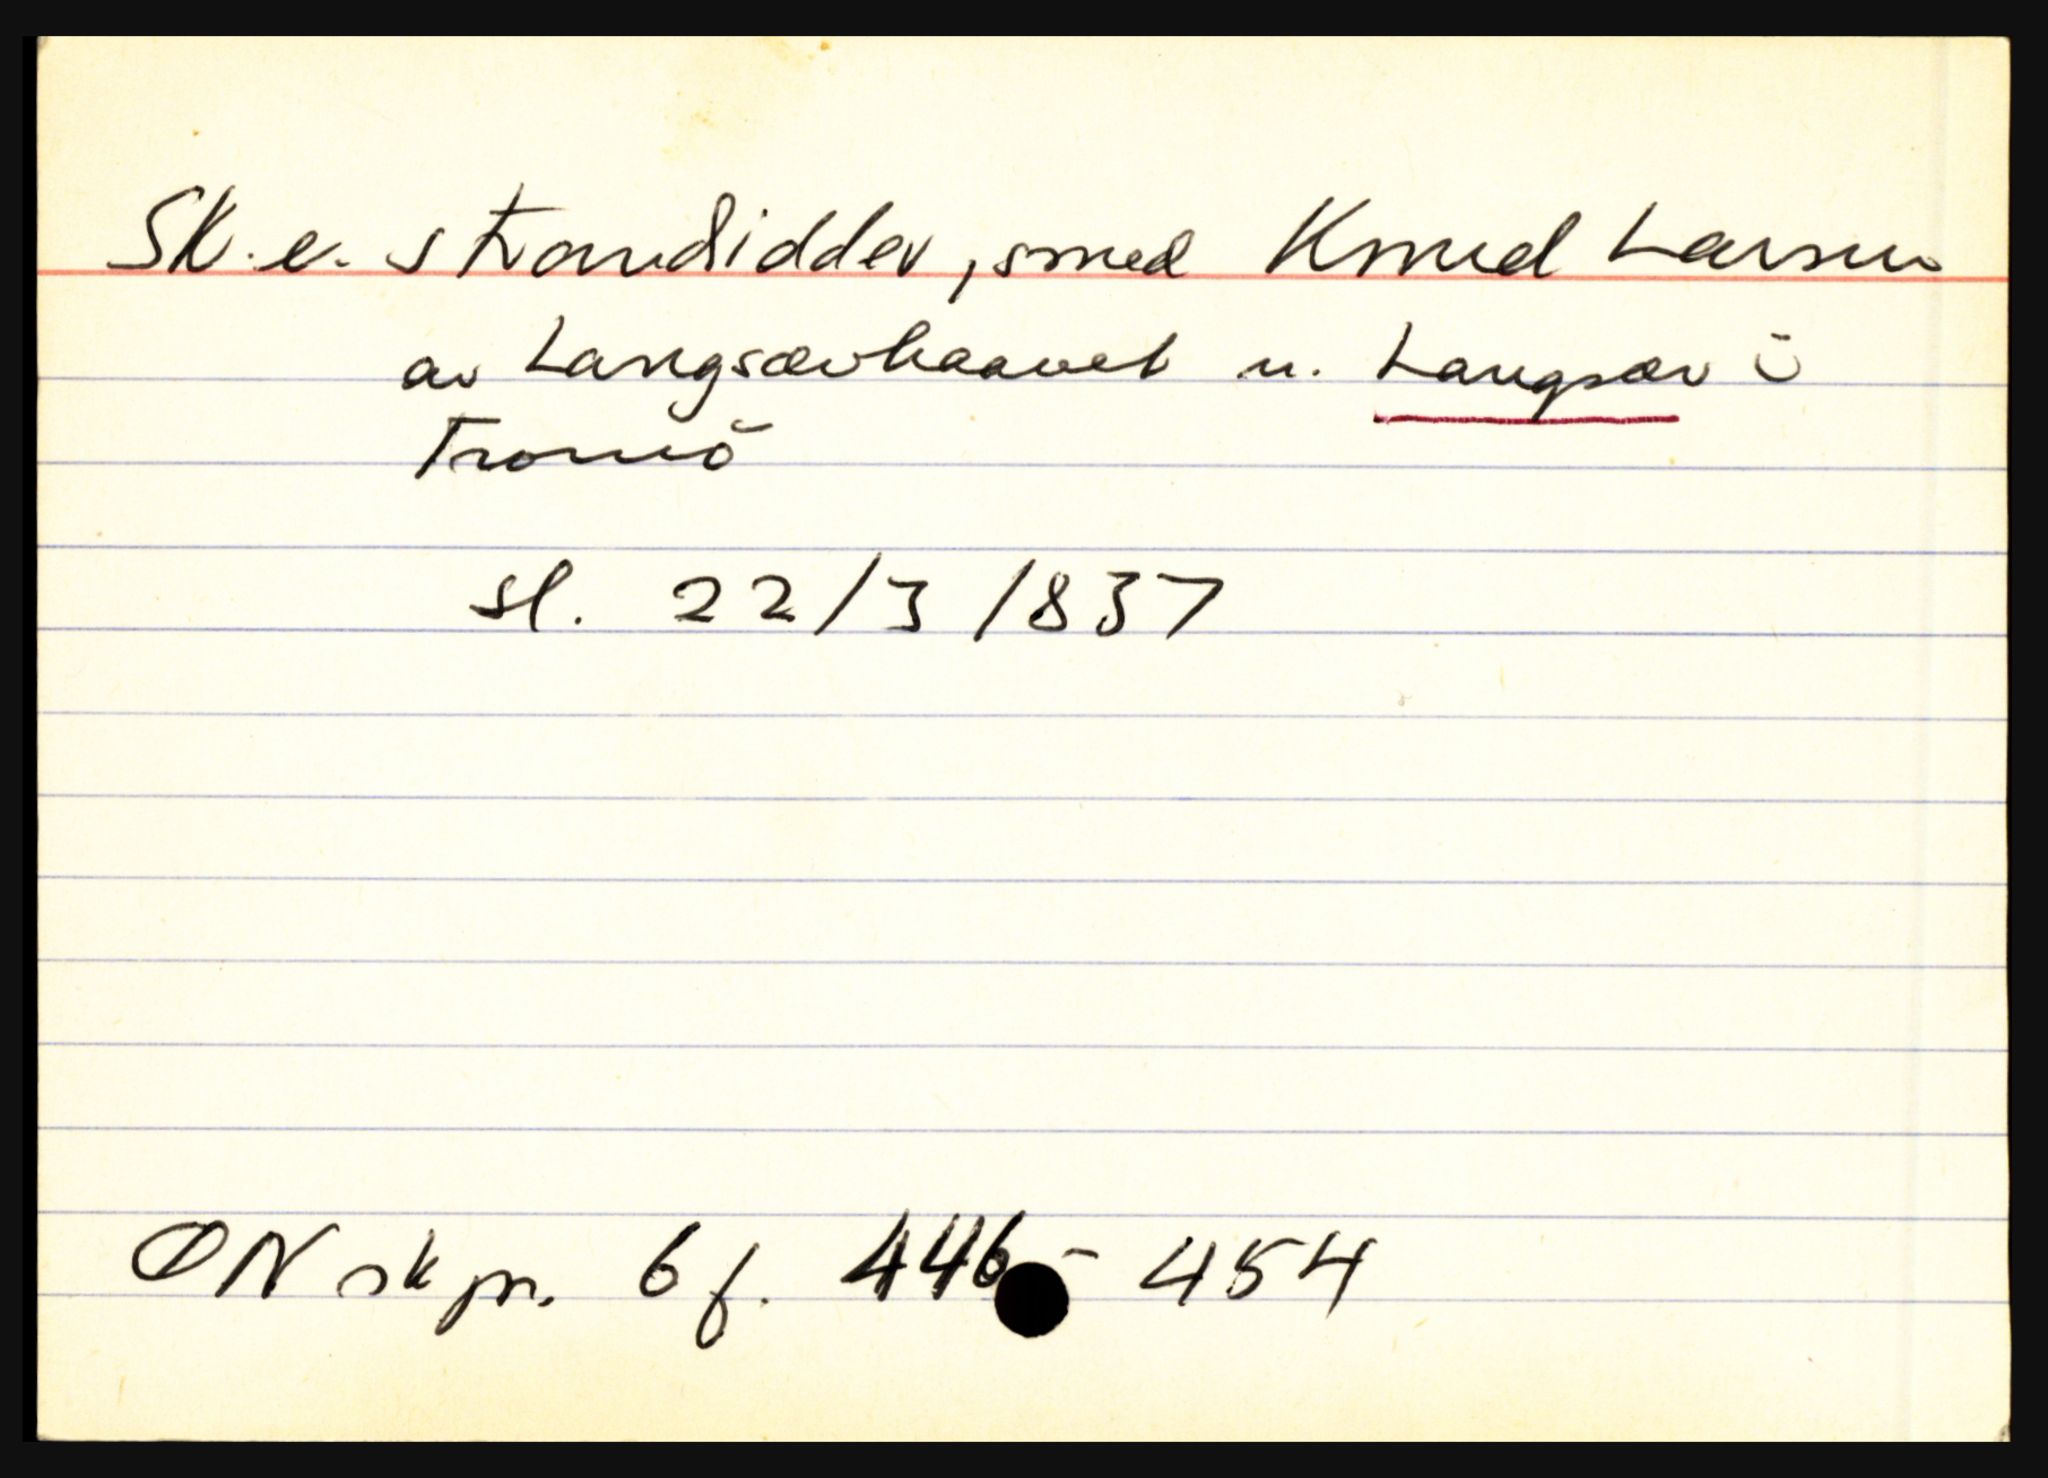 Sk. e. strandsidder, smed Knud Larsen
av Langsævhaavet u. Langsæv i
Tromö
sl. 22/3 1837
ØN skpr. 6 f. 446 - 454